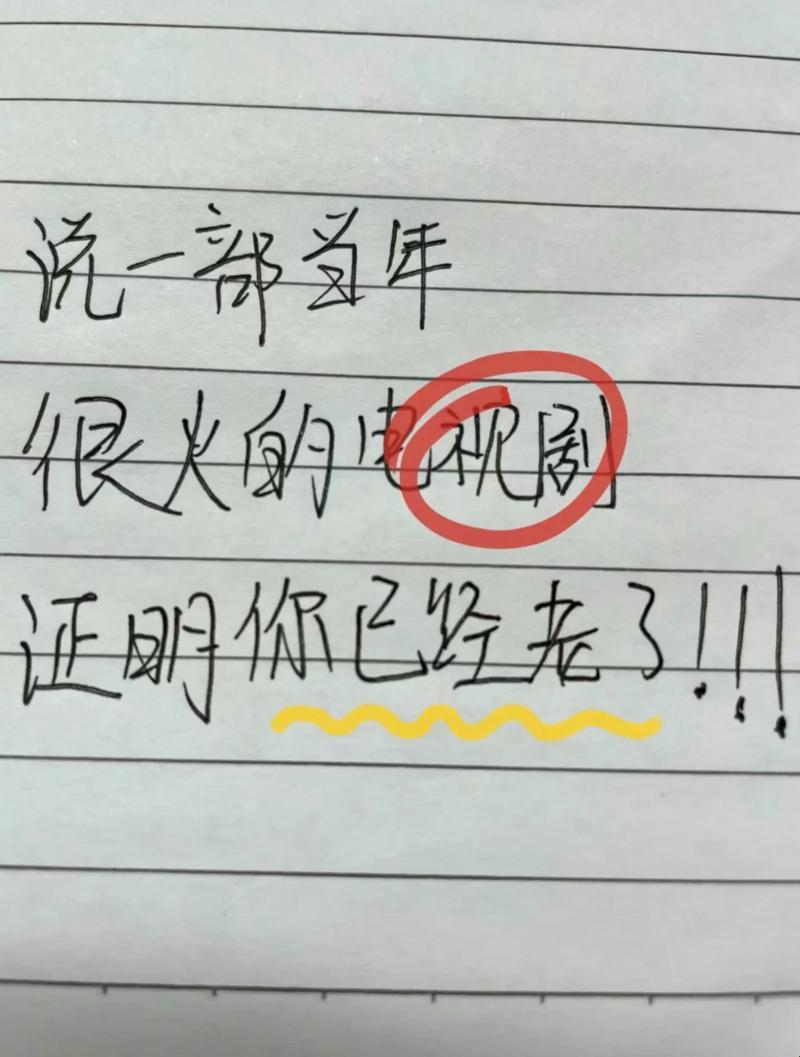 说一部当年
很火的电视剧
证明你已经老了!!!